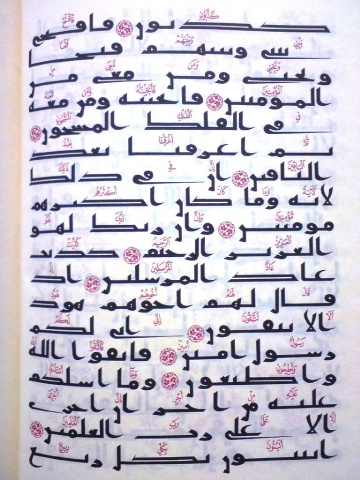 كذبون ۝ فافتح
بيني وبينهم فتحا
ونجني ومن معي من
المومنين ۝ فانجينه ومن معه
في الفلك المشحون ۝
ثم اغرقنا بعد
الباقين ۝ ان في ذلك
لاية وما كان اكثرهم
مومنين ۝ وان ربك لهو
العزيز الرحيم ۝ كذبت
عاد المرسلين ۝ اذ
قال لهم اخوهم هود
الا تتقون ۝ اني لكم
رسول امين ۝ فاتقوا الله
واطيعون ۝ وما اسلكم
عليه من اجر ان اجري
الا على رب العلمين ۝
اتبنون بكل ريع